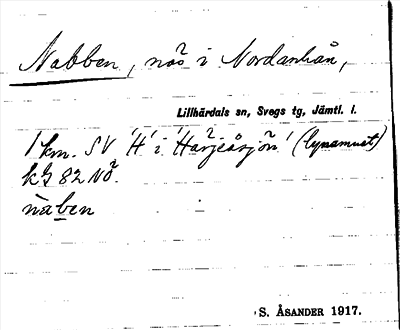 Nabben, näs i Nordanhån,
Lillhärdals sn, Svegs tg, Jämtl. l.
1 km. SV 'H' i 'Härjeåsjön'
kbl 82 NÖ.
nàben
S. ÅSANDER 1917.